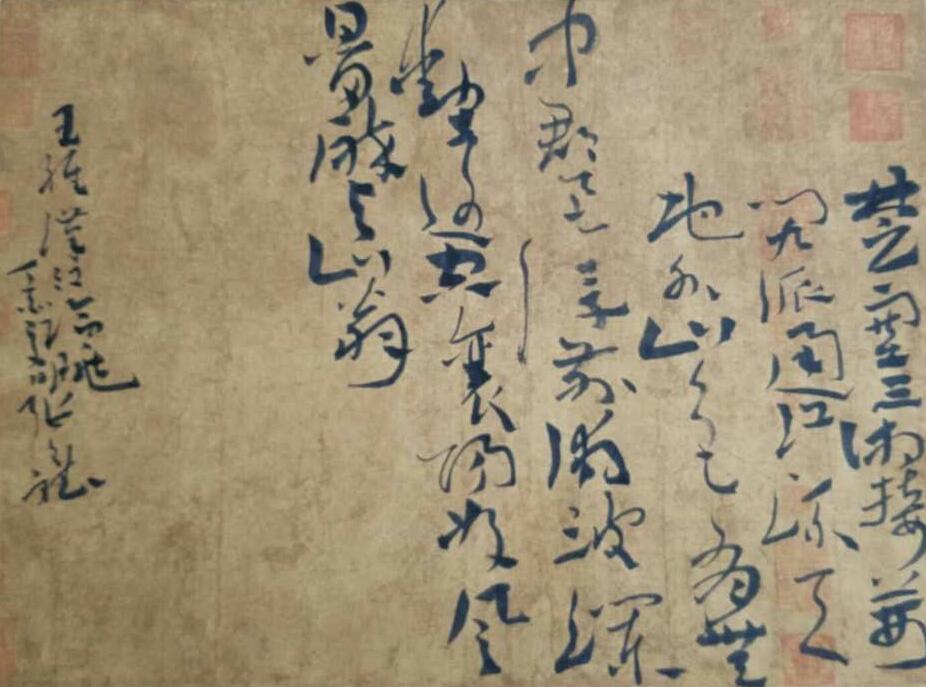 楚塞三湘接荆
门九派通江流天
地外山色有無
中郡邑浮前浦波瀾
動遠空襄陽好風
日留醉与山翁
王維漢江臨眺